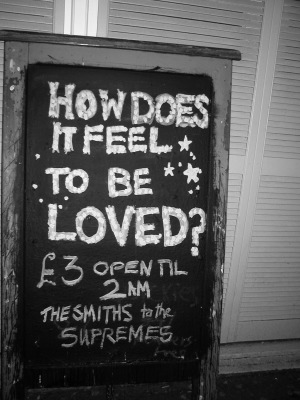 HOW DOES
IT FEEL
TO BE
LOVED?
£3 OPEN TIL
2AM
THE SMITHS to the
SUPREMES